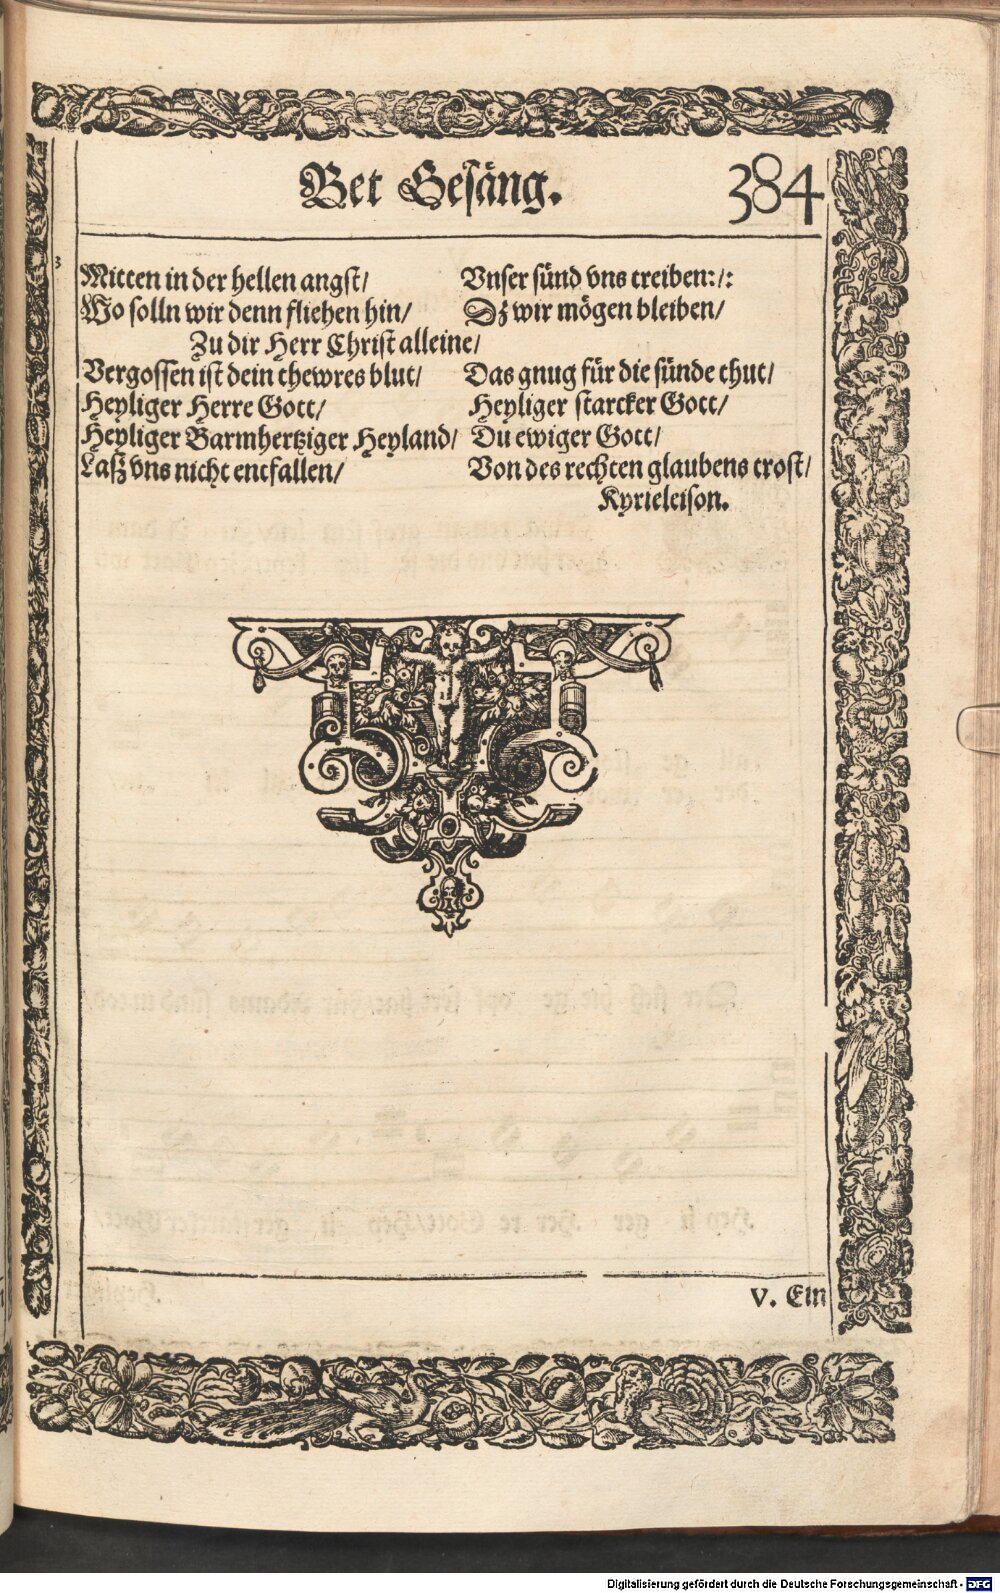 Bet Gesäng. 384
3
Mitten in der hellen angst/ Vnser sünd vns treiben:/:
Wo solln wir denn fliehen hin/ Dz wir mögen bleiben/
Zu dir Herr Christ alleine/
Vergossen ist dein thewres blut/ Das gnug für die sünde thut/
Heyliger Herre Gott/ Heyliger starcker Gott/
Heyliger Barmhertziger Heyland/ Du ewiger Gott/
Laß vns nicht entfallen/ Von des rechten glaubens trost/
Kyrieleison.
V. Ein
Digitalisierung gefördert durch die Deutsche Forschungsgemeinschaft - DFG